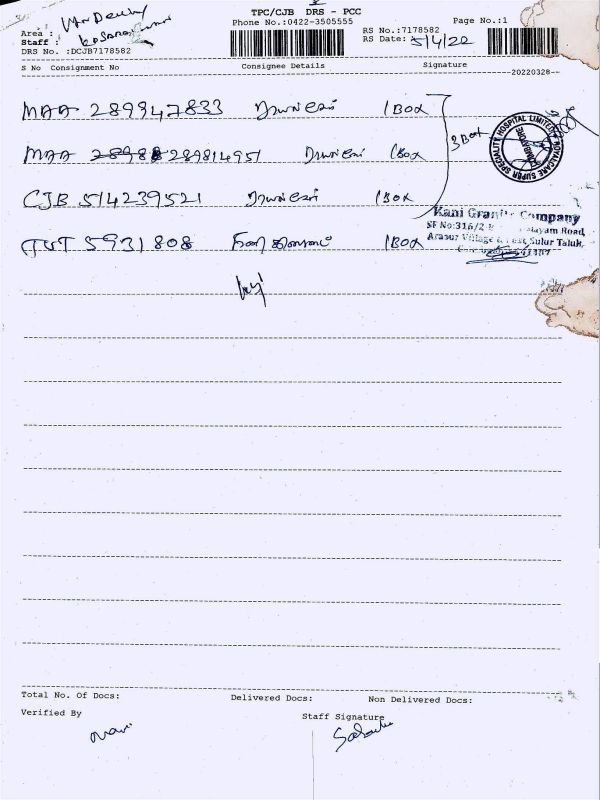 TPC/CJB DRS - PCC
Phone No.:0422-3505555
Page No.:1
Area : Van Delivery
Staff :
DRS No. :DCJB7178582
RS No.:7178582
RS Date: 5/4/22
S No Consignment No Consignee Details Signature
20220328
MAA 289947833 ராயல்கேர் 1 Box
3 Box
MAA 289814951 ராயல்கேர் 1 Box
CJB 514239521 ராயல்கேர் 1 Box
ROYALCARE SUPER SPECIALITY HOSPITAL LIMITED
COIMBATORE
Kani Granite Company
SF No:316/2 Road,
Arasur Village & Post, Sulur Taluk,
5931808 1 Box
Total No. Of Docs: Delivered Docs: Non Delivered Docs:
Verified By
Staff Signature